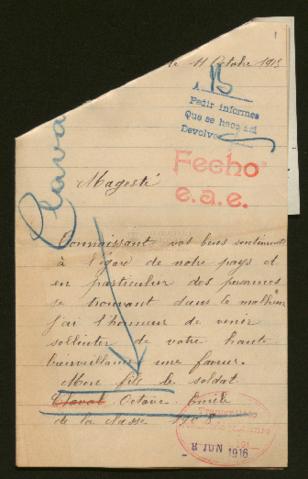 1
le 11 Octobre 1915
B
Pedir informes
Que se hace así
Devolve
Clava
Fecho
e.a.e.
Magesté
Connaissant vos bons sentiments
à l'égard de notre pays et
en particulier des personnes
se trouvant dans le malheur
j'ai l'honneur de venir
solliciter de votre haute
bienveillance une faveur.
Mon fils le soldat
Clavel Octave Emile
de la classe 1908
8 JUN 1916